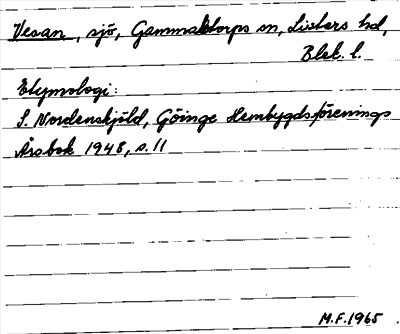 Vesan, sjö, Gammalstorps sn, Listers hd,
Blek. l.
Etymologi:
S. Nordenskjöld, Göinge Hembygdsförenings
Årsbok 1948, s. 11
M.F. 1965